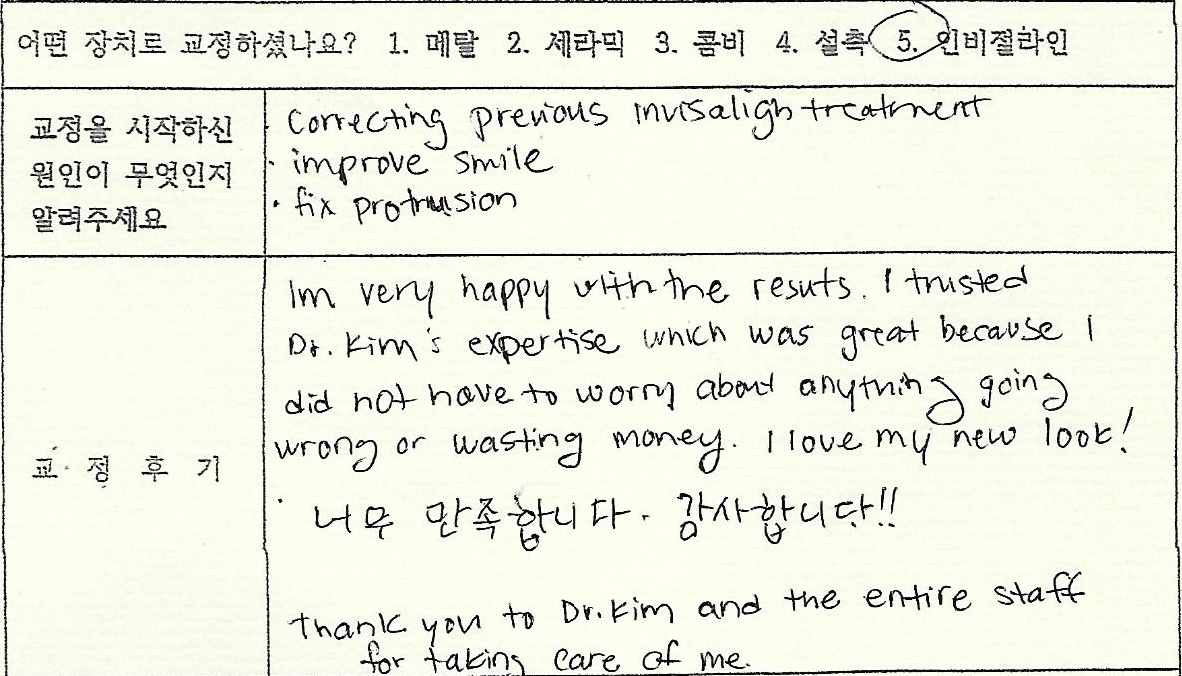 어떤 장치로 교정하셨나요? 1. 메탈 2. 세라믹 3. 콤비 4. 설측 5. 인비절라인
교정을 시작하신
원인이 무엇인지
알려주세요
· Correcting previous invisaligh treatment
· improve smile
· fix protrusion
교정후기
Im very happy with the resuts. I trusted
Dr. Kim's expertise which was great because I
did not have to worry about anything going
wrong or wasting money. I love my new look!
너무 만족합니다. 감사합니다!!
Thank you to Dr. Kim and the entire staff
for taking care of me.